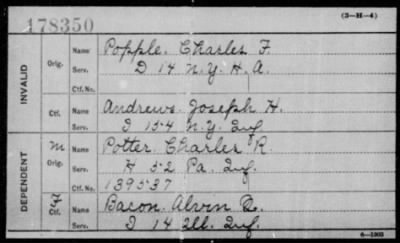 178350
(3-H-4)
INVALID
Orig.
Name
Popple. Charles F.
Serv.
D 14 N.Y. H. A.
Ctf. No.
Ctf.
Name
Andrews. Joseph H.
Serv.
I 154 N.Y. Inf
DEPENDENT
M
Orig.
Name
Potter. Charles R.
Serv.
H 52 Pa. Inf.
Ctf. No.
139537
F
Ctf.
Name
Bacon. Alvin D.
Serv.
I 14 Ill. Inf.
6-1903